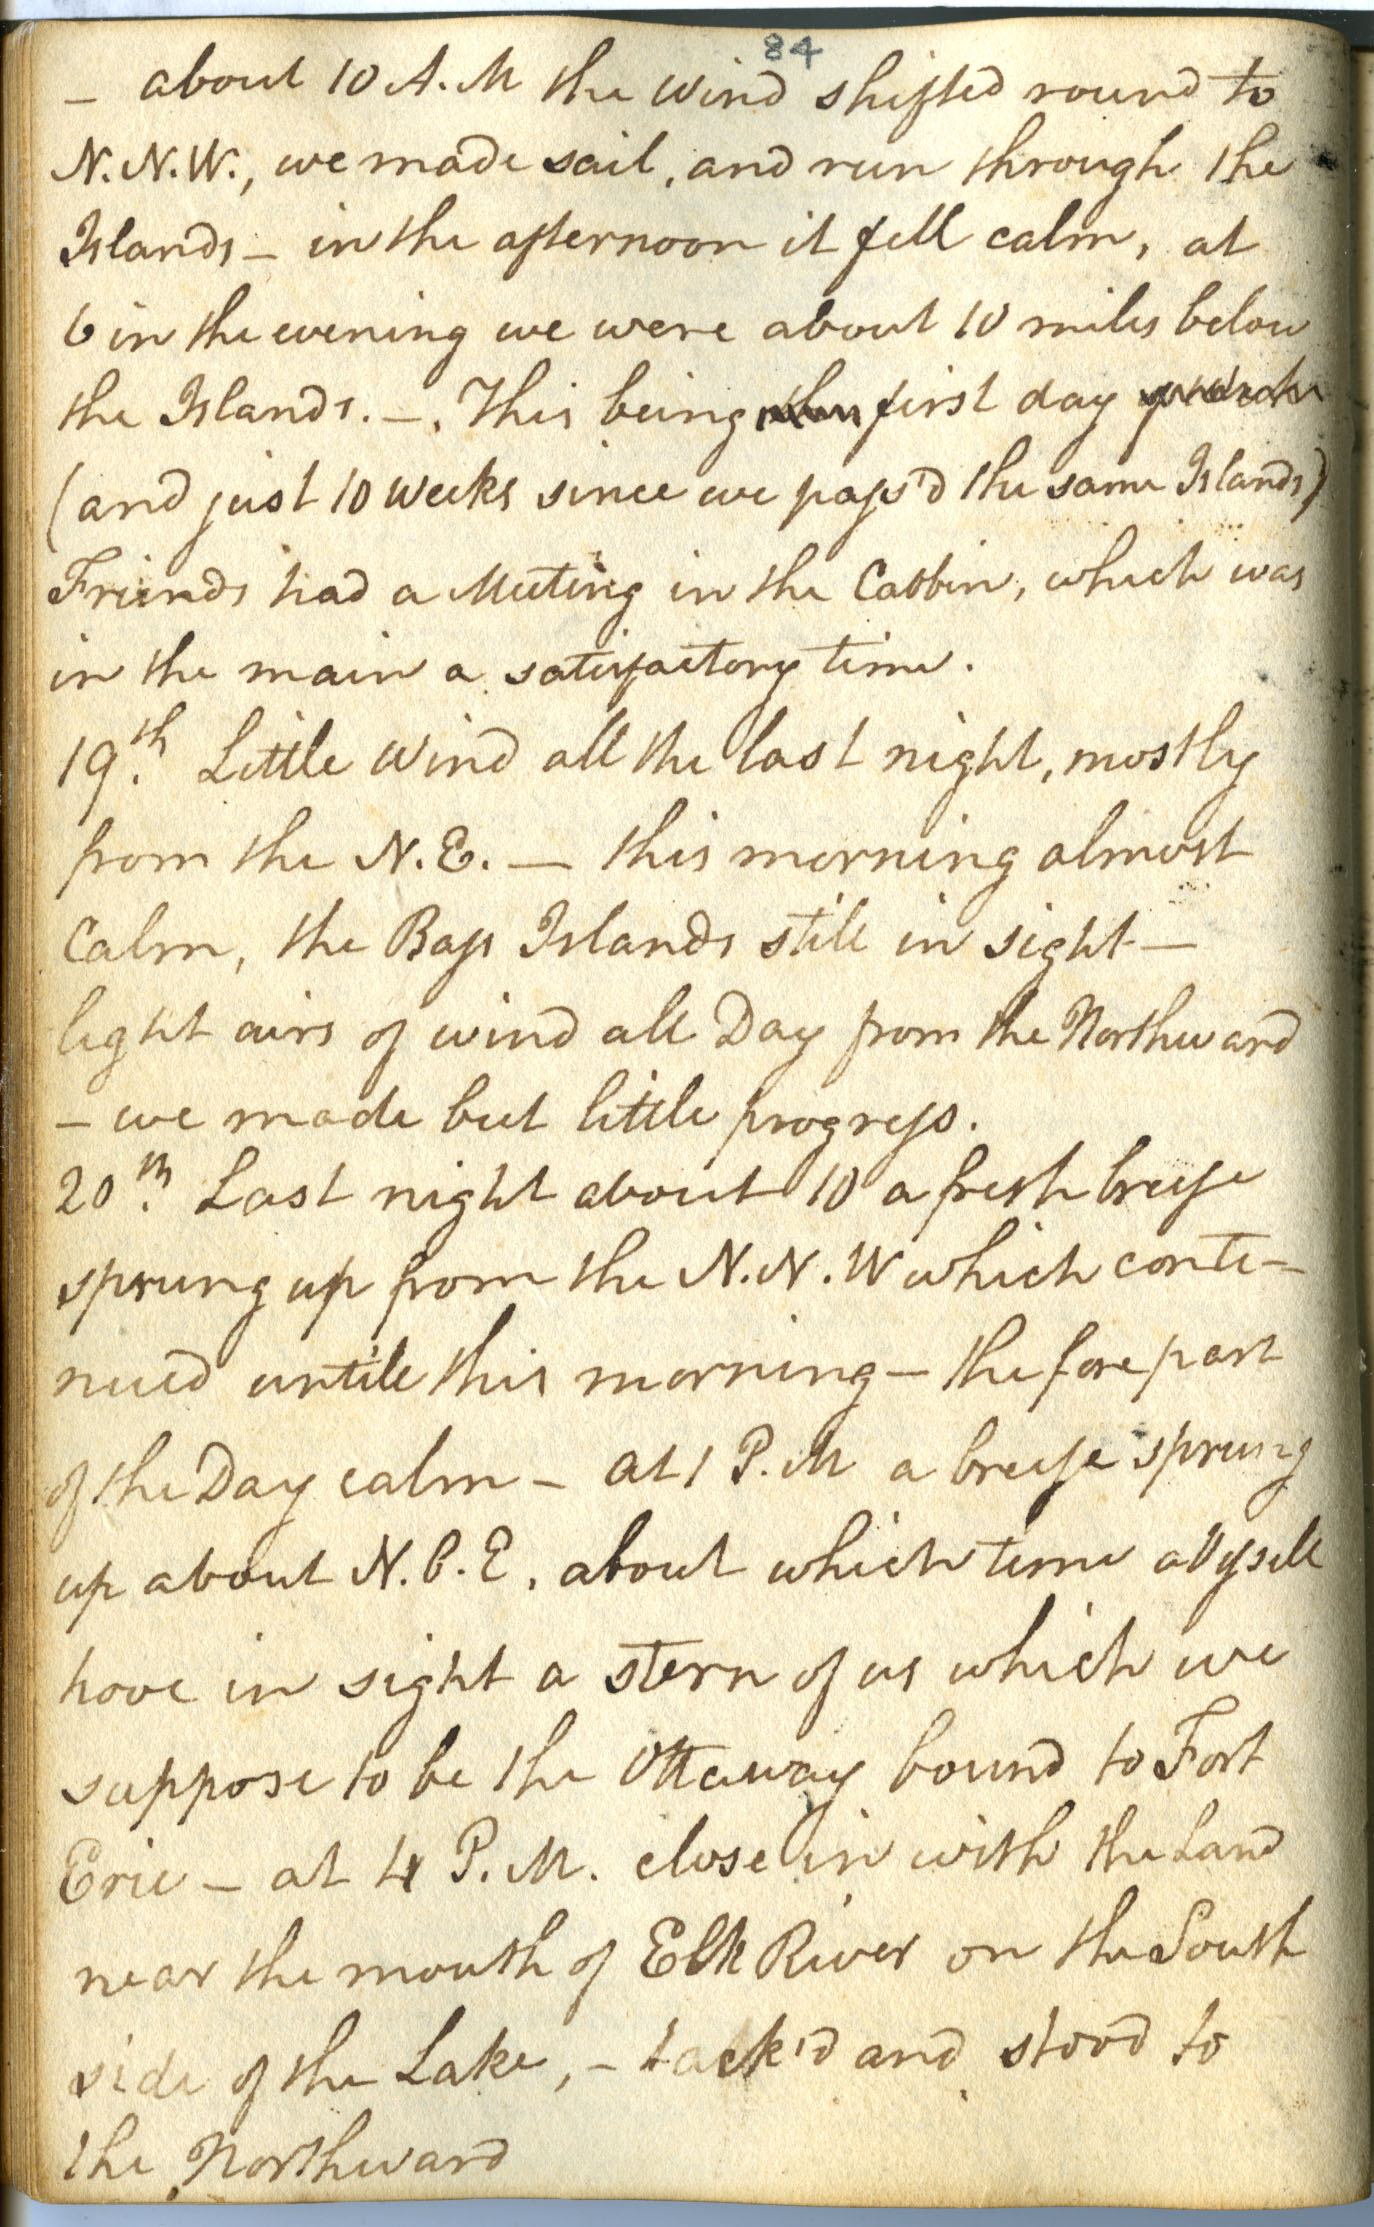 84
– about 10 A.M the Wind shifted round to
N.N.W., we made sail, and run through the
Islands – in the afternoon it fell calm, at
6 in the evening we were about 10 miles below
the Islands. –. This being first day
(and just 10 Weeks since we pass'd the same Islands)
Friends had a Meeting in the Cabbin, which was
in the main a satisfactory time.
19th. Little Wind all the last night, mostly
from the N.E. — this morning almost
Calm, the Bass Islands still in sight —
light airs of wind all Day from the Northward
– we made but little progress.
20th. Last night about 10 a fresh breese
sprung up from the N.N.W which conti-
nued untill this morning – the fore part
of the Day calm – at 1 P.M a breese sprung
up about N.B.E. about which time a Vessell
hove in sight a stern of us which we
suppose to be the Ottaway bound to Fort
Erie – at 4 P.M. close in with the Land
near the mouth of Elk River on the South
side of the Lake, – tack'd and stood to
the Northward